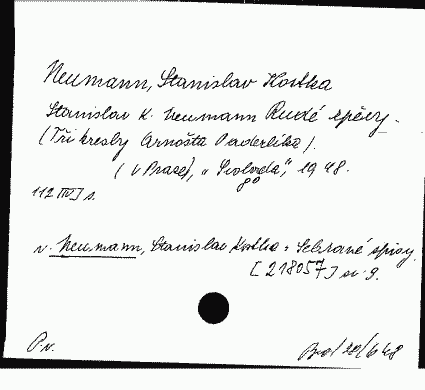 Neumann, Stanislav Kostka
Stanislav K. Neumann Rudé zpěvy.
(Tři kresby Arnošta Paderlíka).
(V Praze), „Svoboda", 1948.
8°
112 [III] s.
v. Neumann, Stanislav Kostka: Sebrané spisy
[218057] sv 9.
Pv.
48